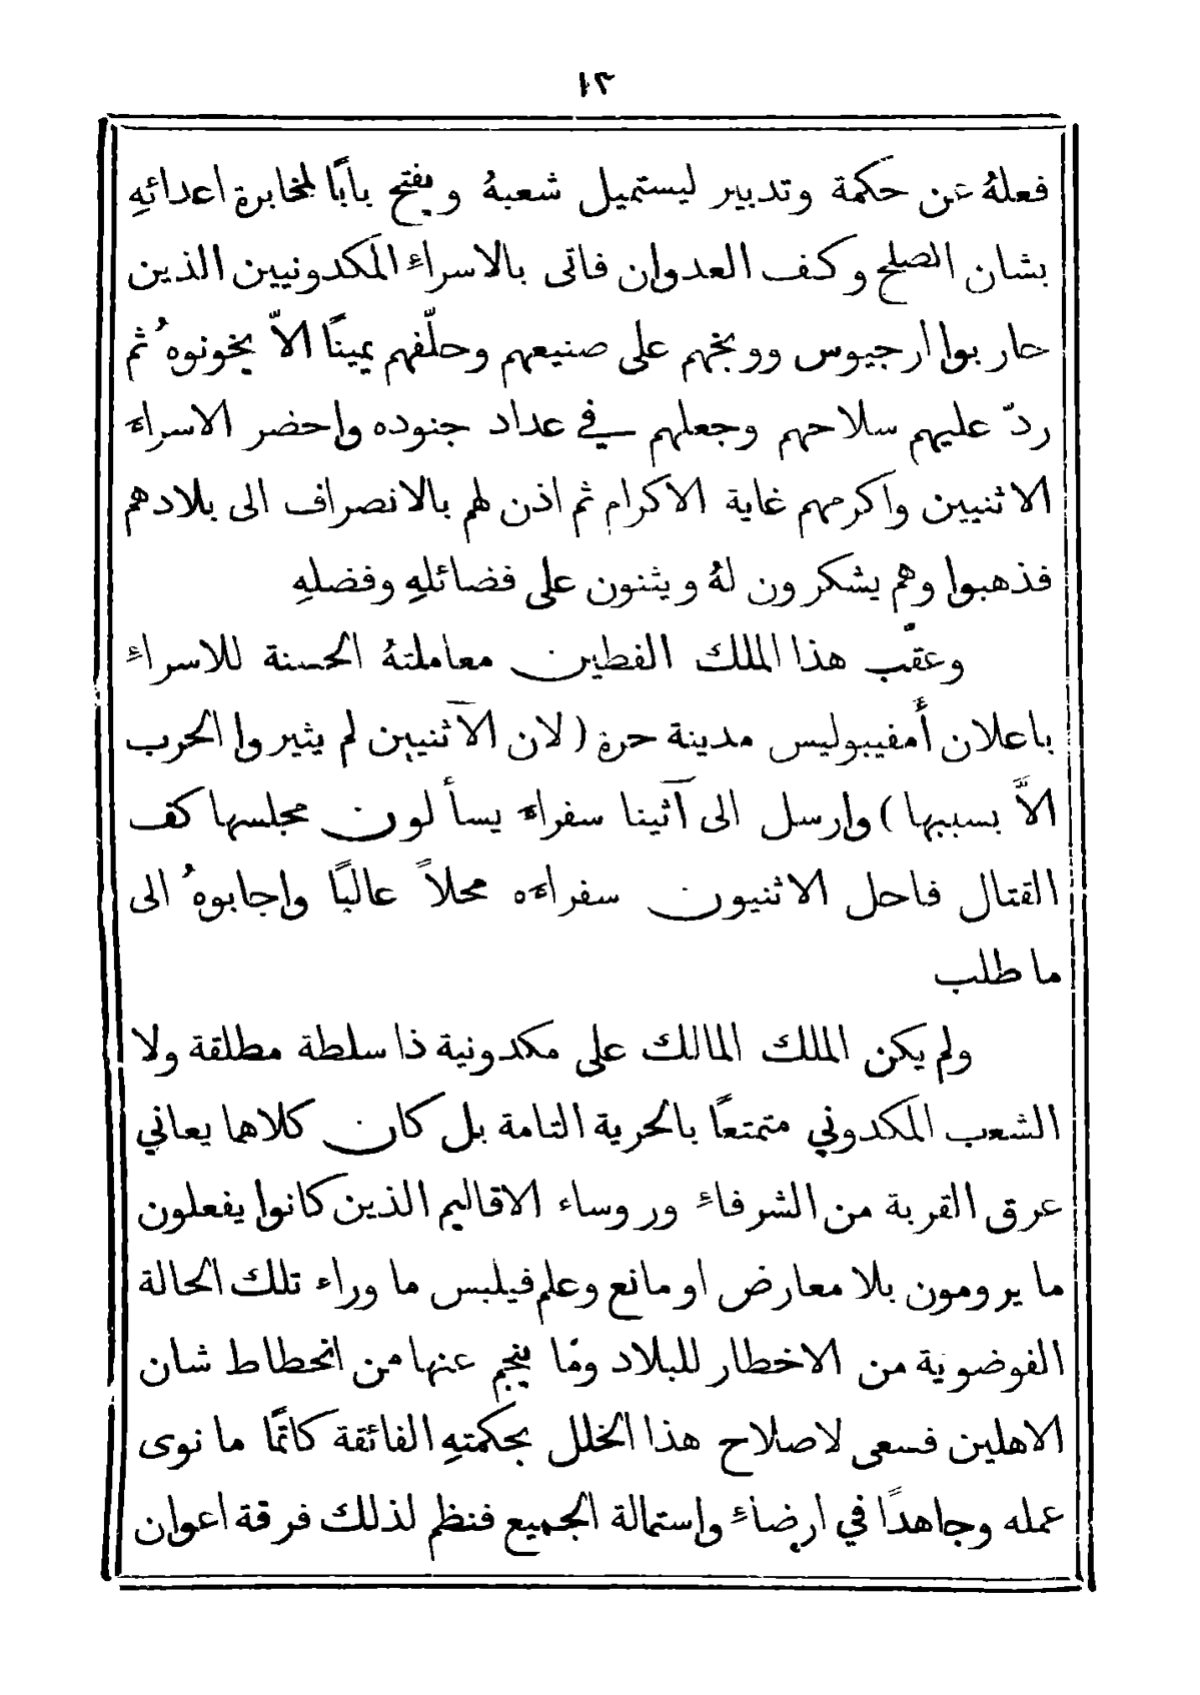 ١٢
فعلهُ عن حكمة وتدبير ليستميل شعبهُ ويفتح بابًا لمخابرة اعدائهِ
بشان الصلح وكف العدوان فاتى بالاسراءِ المكدونيين الذين
حاربوا ارجيوس ووبخهم على صنيعهم وحلّفهم يمينًا الاّ يخونوهُ ثم
ردّ عليهم سلاحهم وجعلهم في عداد جنوده واحضر الاسراء
الاثنيين واكرمهم غاية الاكرام ثم اذن لهم بالانصراف الى بلادهم
فذهبوا وهم يشكرون لهُ ويثنون على فضائلهِ وفضلهِ
وعقّب هذا الملك الفطين معاملتهُ الحسنة للاسراءِ
باعلان أمفيبوليس مدينة حرة (لان الآثنيين لم يثيروا الحرب
الاَّ بسببها) وارسل الى آثينا سفراء يسألون مجلسها كف
القتال فاحل الاثنيون سفراءه محلاً عاليًا واجابوهُ الى
ما طلب
ولم يكن الملك المالك على مكدونية ذا سلطة مطلقة ولا
الشعب المكدوني متمتعًا بالحرية التامة بل كان كلاهما يعاني
عرق القربة من الشرفاءِ وروساء الاقاليم الذين كانوا يفعلون
ما يرومون بلا معارض او مانع وعلم فيلبس ما وراء تلك الحالة
الفوضوية من الاخطار للبلاد وما ينجم عنها من انحطاط شان
الاهلين فسعى لاصلاح هذا الخلل بحكمتهِ الفائقة كاتمًا ما نوى
عمله وجاهدًا في ارضاءِ واستمالة الجميع فنظم لذلك فرقة اعوان